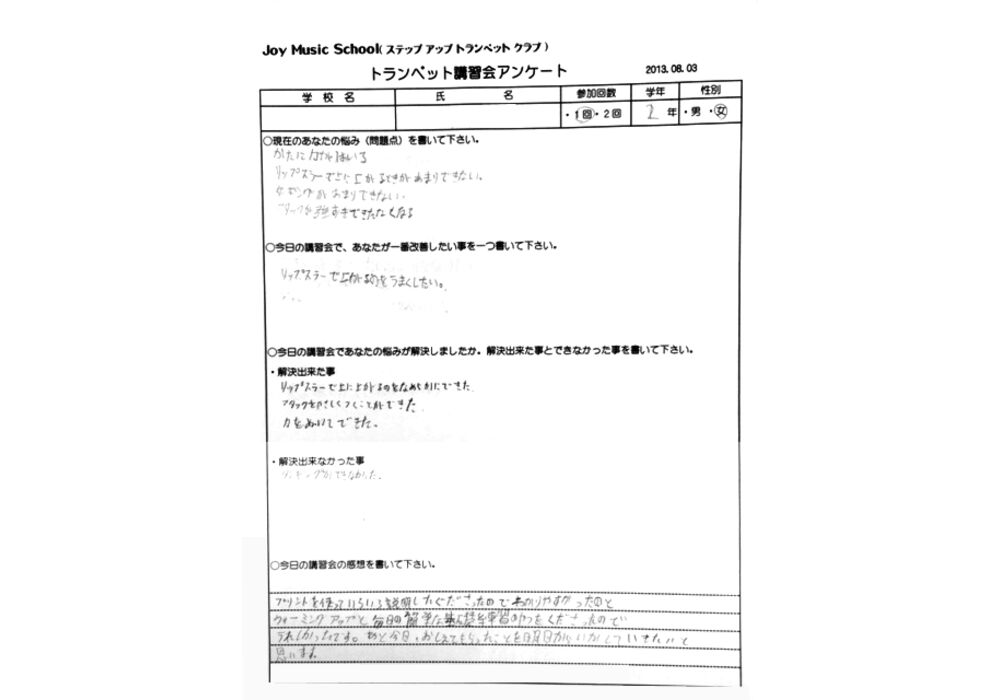 Joy Music School(ステップ アップ トランペット クラブ)
トランペット講習会アンケート 2013.08.03
学校名 氏名 参加回数 学年 性別
・1回・2回 2年 ・男・女
○現在のあなたの悩み(問題点)を書いて下さい。
かたに力がはいる
リップスラーで上に上がるときがあまりできない。
タギングがあまりできない。
が強すぎできたなくなる
○今日の講習会で、あなたが一番改善したい事を一つ書いて下さい。
リップスラーで上がるのをうまくしたい。
○今日の講習会であなたの悩みが解決しましたか。解決出来た事とできなかった事を書いて下さい。
・解決出来た事
リップスラーで上に上がるのをなめらかにできた。
アタックをやさしくつくことができた。
力をぬいてできた。
・解決出来なかった事
タンギングができなかった。
○今日の講習会の感想を書いて下さい。
プリントを使っていろいろ説明してくださったのでわかりやすかったのと
ウォーミングアップと、毎日の簡単な をくださったので
うれしかったです。あと今日、おしえてもらったことを明日からいかしていきたいと
思います